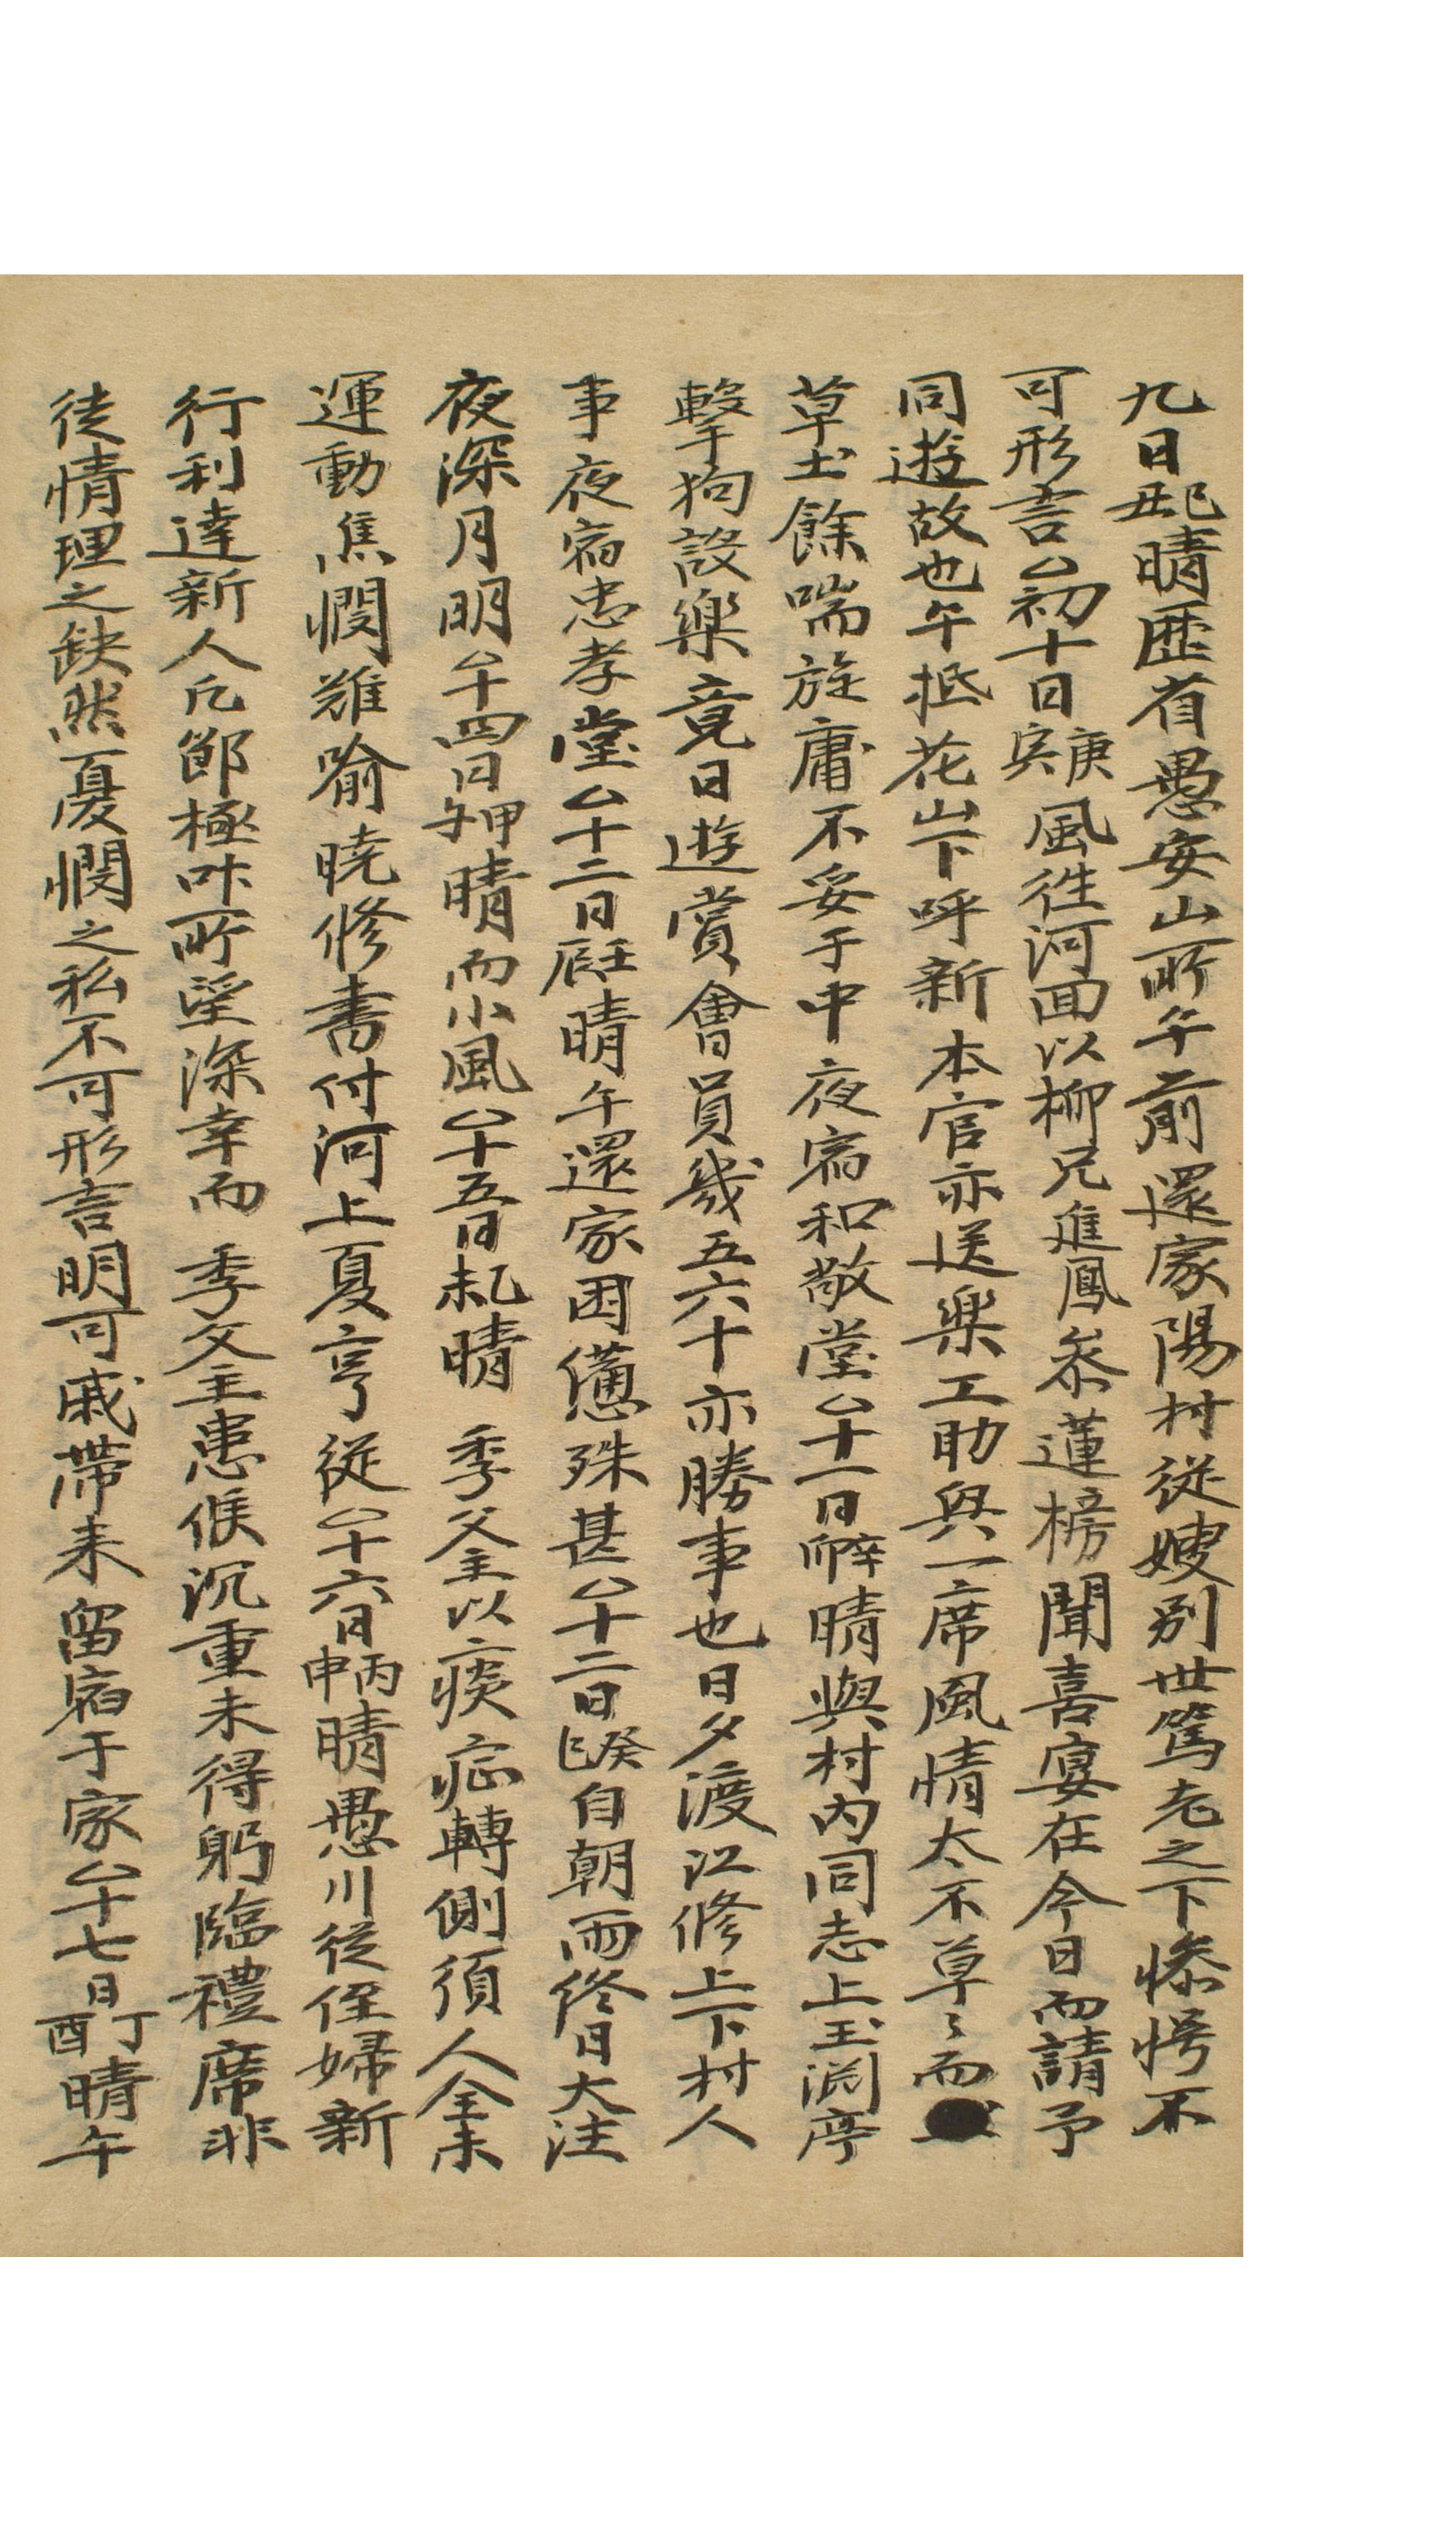 九日己丑晴歷省愚安山所午前還家陽村從嫂別世篤老之下慘愕不
可形言厶初十日庚寅風徃河回以柳兄進鳳參蓮榜聞喜宴在今日而請予
同遊故也午抵花山下呼新本官亦送樂工助興一席風情太不草〻而
草土餘喘旋庸不妥于中夜宿和敬堂厶十一日辛卯晴與村內同志上玉淵亭
擊狗設樂竟日遊賞會員幾五六十亦勝事也日夕渡江修上下村人
事夜宿忠孝堂厶十二日壬辰晴午還家困憊殊甚厶十三日癸巳自朝而終日大注
夜深月明厶十四日甲午晴而小風厶十五日乙未晴 季父主以痰症轉側須人全未
運動焦憫難喻曉修書付河上夏亨從厶十六日丙申晴愚川從侄婦新
行利達新人凡節極叶所望深幸而 季父主患候沉重未得躬臨禮席非
徒情理之缺然憂憫之私不可形言明可戚帶來留宿于家厶十七日丁酉晴午